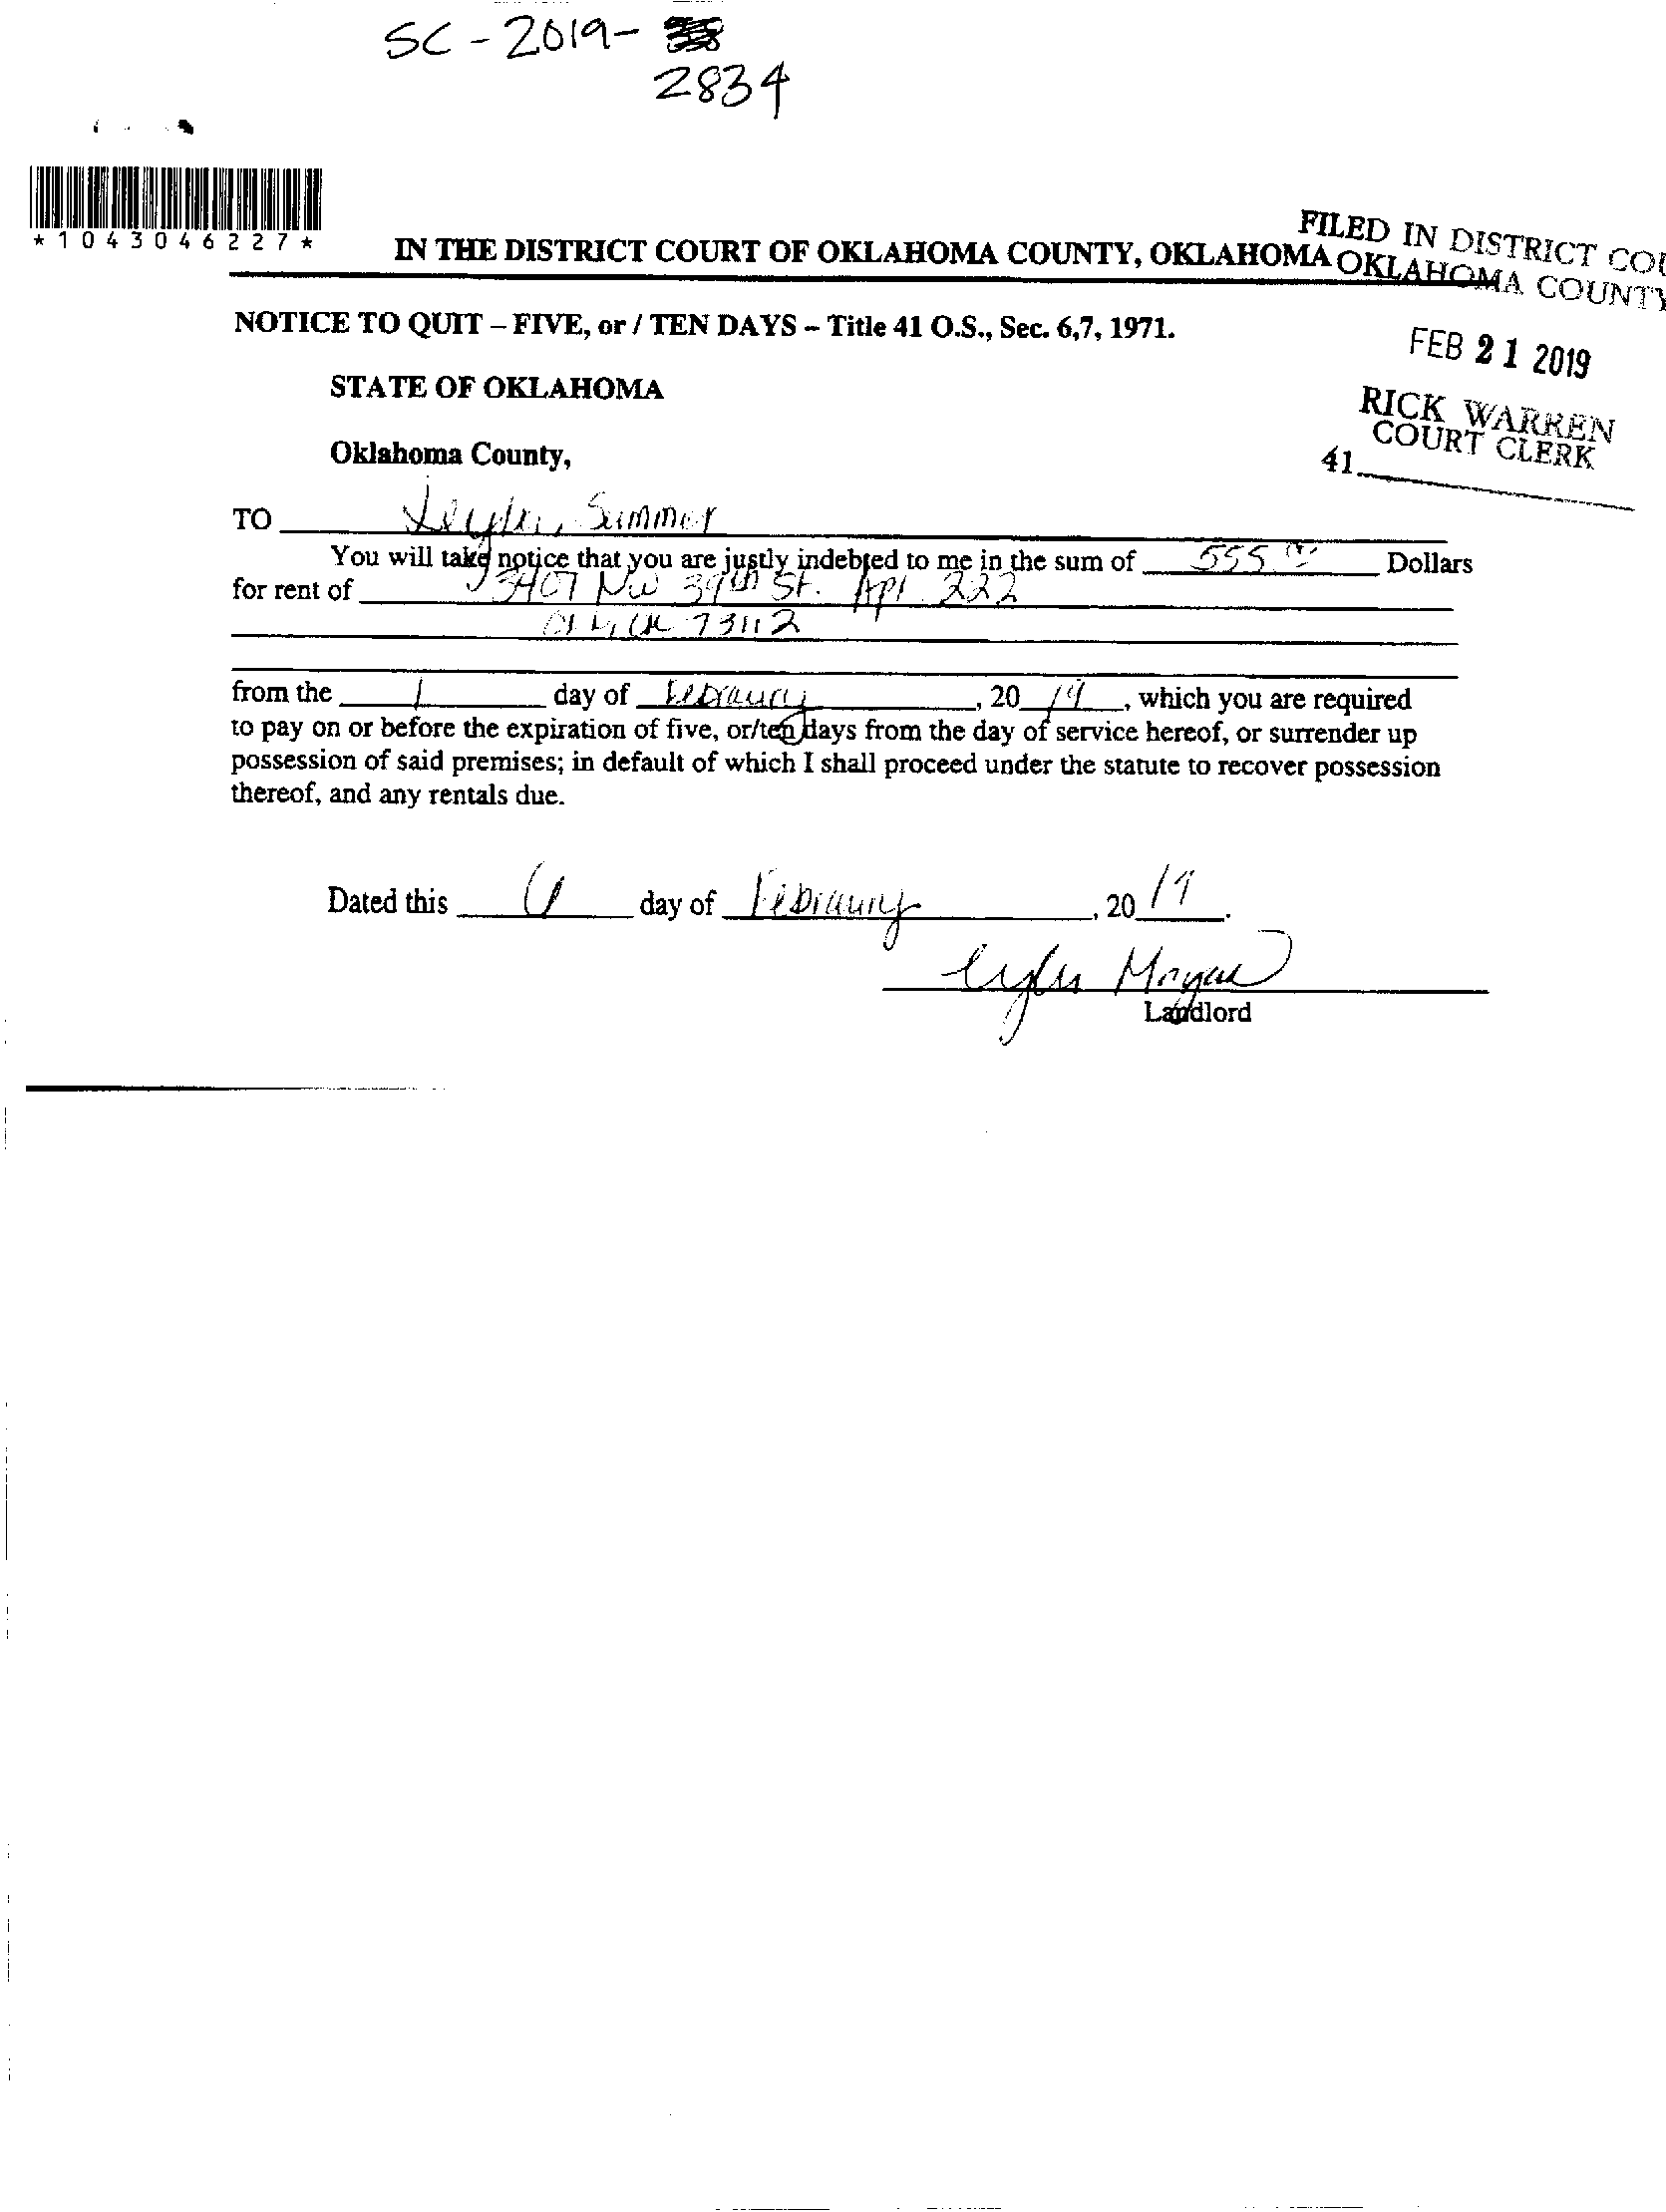 SC-2019-
2834
*1043046227*
IN THE DISTRICT COURT OF OKLAHOMA COUNTY, OKLAHOMA
FILED IN DISTRICT COU
OKLAHOMA COUNTY
NOTICE TO QUIT – FIVE, or / TEN DAYS – Title 41 O.S., Sec. 6,7, 1971.
FEB 21 2019
STATE OF OKLAHOMA
RICK WARREN
COURT CLERK
Oklahoma County,
41
TO Summer
You will take notice that you are justly indebted to me in the sum of 555 Dollars
for rent of 3407 NW 39th St. Apt. 222
73112
from the 1 day of Febraury, 2019, which you are required
to pay on or before the expiration of five, or/ten days from the day of service hereof, or surrender up
possession of said premises; in default of which I shall proceed under the statute to recover possession
thereof, and any rentals due.
Dated this day of Febraury, 2019.
Morgan
Landlord